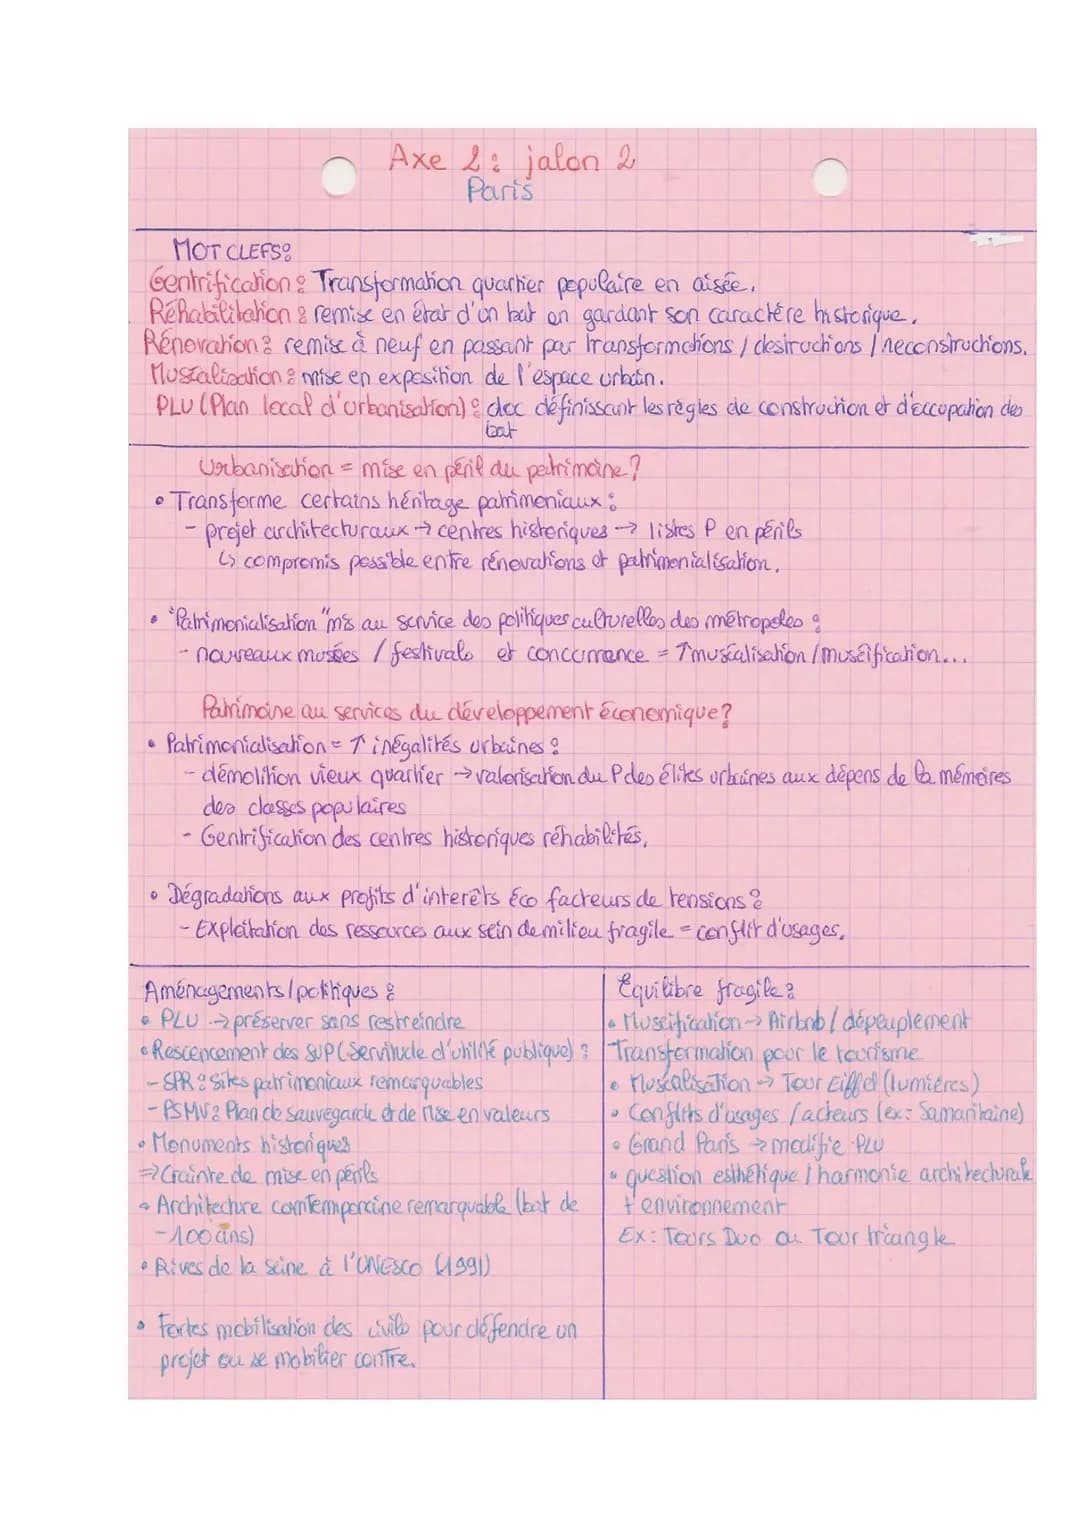 Axe 2 : jalon 2
Paris
MOT CLEFS :
Gentrification : Transformation quartier populaire en aisée.
Réhabilitation : remise en état d'un bat en gardant son caractère historique.
Rénovation : remise à neuf en passant par transformations / destructions / reconstructions.
Muséalisation : mise en exposition de l'espace urbain.
PLU (Plan local d'urbanisation) : doc définissant les règles de construction et d'occupation des
bat
Urbanisation = mise en péril du patrimoine ?
• Transforme certains héritage patrimoniaux :
- projet architecturaux → centres historiques → listes P en périls
↳ compromis possible entre rénovations et patrimonialisation.
• "Patrimonialisation" mis au service des politiques culturelles des métropoles :
- nouveaux musées / festivals et concurrence = ↑ muséalisation / muséification...
Patrimoine au services du développement économique ?
• Patrimonialisation = ↑ inégalités urbaines :
- démolition vieux quartier → valorisation du P des élites urbaines aux dépens de la mémoires
des classes populaires
- Gentrification des centres historiques réhabilités.
• Dégradations aux profits d'interêts éco facteurs de tensions :
- Exploitation des ressources aux sein de milieu fragile = conflit d'usages.
Aménagements / politiques :
• PLU → préserver sans restreindre
• Rescencement des SUP (Servitude d'utilité publique) :
- SPR : Sites patrimoniaux remarquables
- PSMV : Plan de sauvegarde et de mise en valeurs
• Monuments historiques
⇒ Crainte de mise en périls
• Architecture comtemporaine remarquable (bat de
-100 ans)
• Rives de la seine à l'UNESCO (1991)
• Fortes mobilisation des civils pour défendre un
projet ou se mobilier contre.
Équilibre fragile :
• Muséification → Airbnb / dépeuplement
Transformation pour le tourisme
• Muséalisation → Tour Eiffel (lumières)
• Conflits d'usages / acteurs (ex : Samaritaine)
• Grand Paris → modifie PLU
• question esthétique / harmonie architecturale
+ environnement
Ex : Tours Duo ou Tour triangle